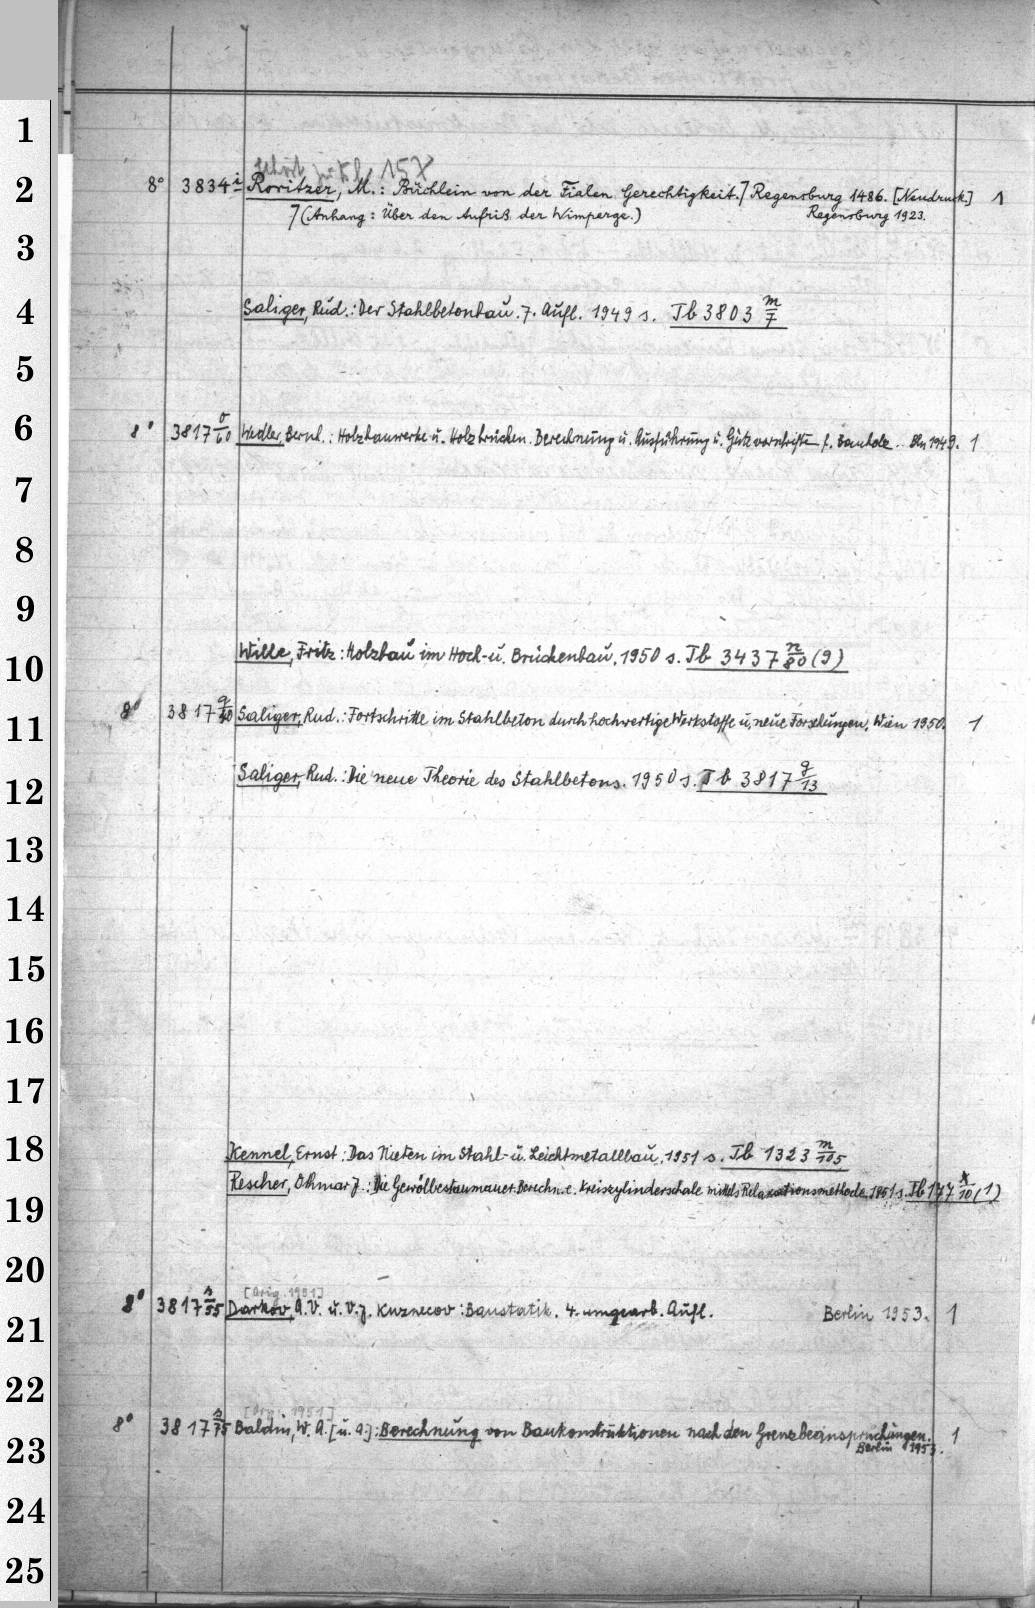 1
gehört zu
2
8° 3834 i Roritzer, M.: Büchlein von der Fialen Gerechtigkeit.] Regensburg 1486. [Neudruck.] 1
](Anhang: Über den Aufriß der Wimperge.) Regensburg 1923.
3
4
Saliger, Rud.: Der Stahlbetonbau. 7. Aufl. 1949 s. Tb 3803 m/7
5
6
8° 3817 o/60 Wedler, Bernh.: Holzbauwerke u. Holzbrücken. Berechnung u. Ausführung u. Gütevorschriften f. Bauholz. Bln 1949. 1
7
8
9
10
Wille, Fritz: Holzbau im Hoch- u. Brückenbau. 1950 s. Tb 3437 n/80 (9)
11
8° 3817 Saliger, Rud.: Fortschritte im Stahlbeton durch hochwertige Werkstoffe u. neue Forschungen. Wien 1950. 1
12
Saliger, Rud.: Die neue Theorie des Stahlbetons. 1950 s. Tb 3817 q/13
13
14
15
16
17
18
Kennel, Ernst: Das Nieten im Stahl- u. Leichtmetallbau. 1951 s. Tb 1323 m/105
19
Rescher, Othmar J.: Die Gewölbestaumauer. Berechn. e. Kreiszylinderschale mittels Relaxationsmethode. 1951 s. Tb 177 (1)
20
[Orig. 1951]
21
8° 3817 s/55 Darkov, A.V. u. V.J. Kuznecov: Baustatik. 4. umgearb. Aufl. Berlin 1953. 1
22
[Orig. 1951]
23
8° 3817 s/75 Baldin, W. A. [u. a.]: Berechnung von Baukonstruktionen nach den Grenzbeanspruchungen. 1
Berlin 1953.
24
25